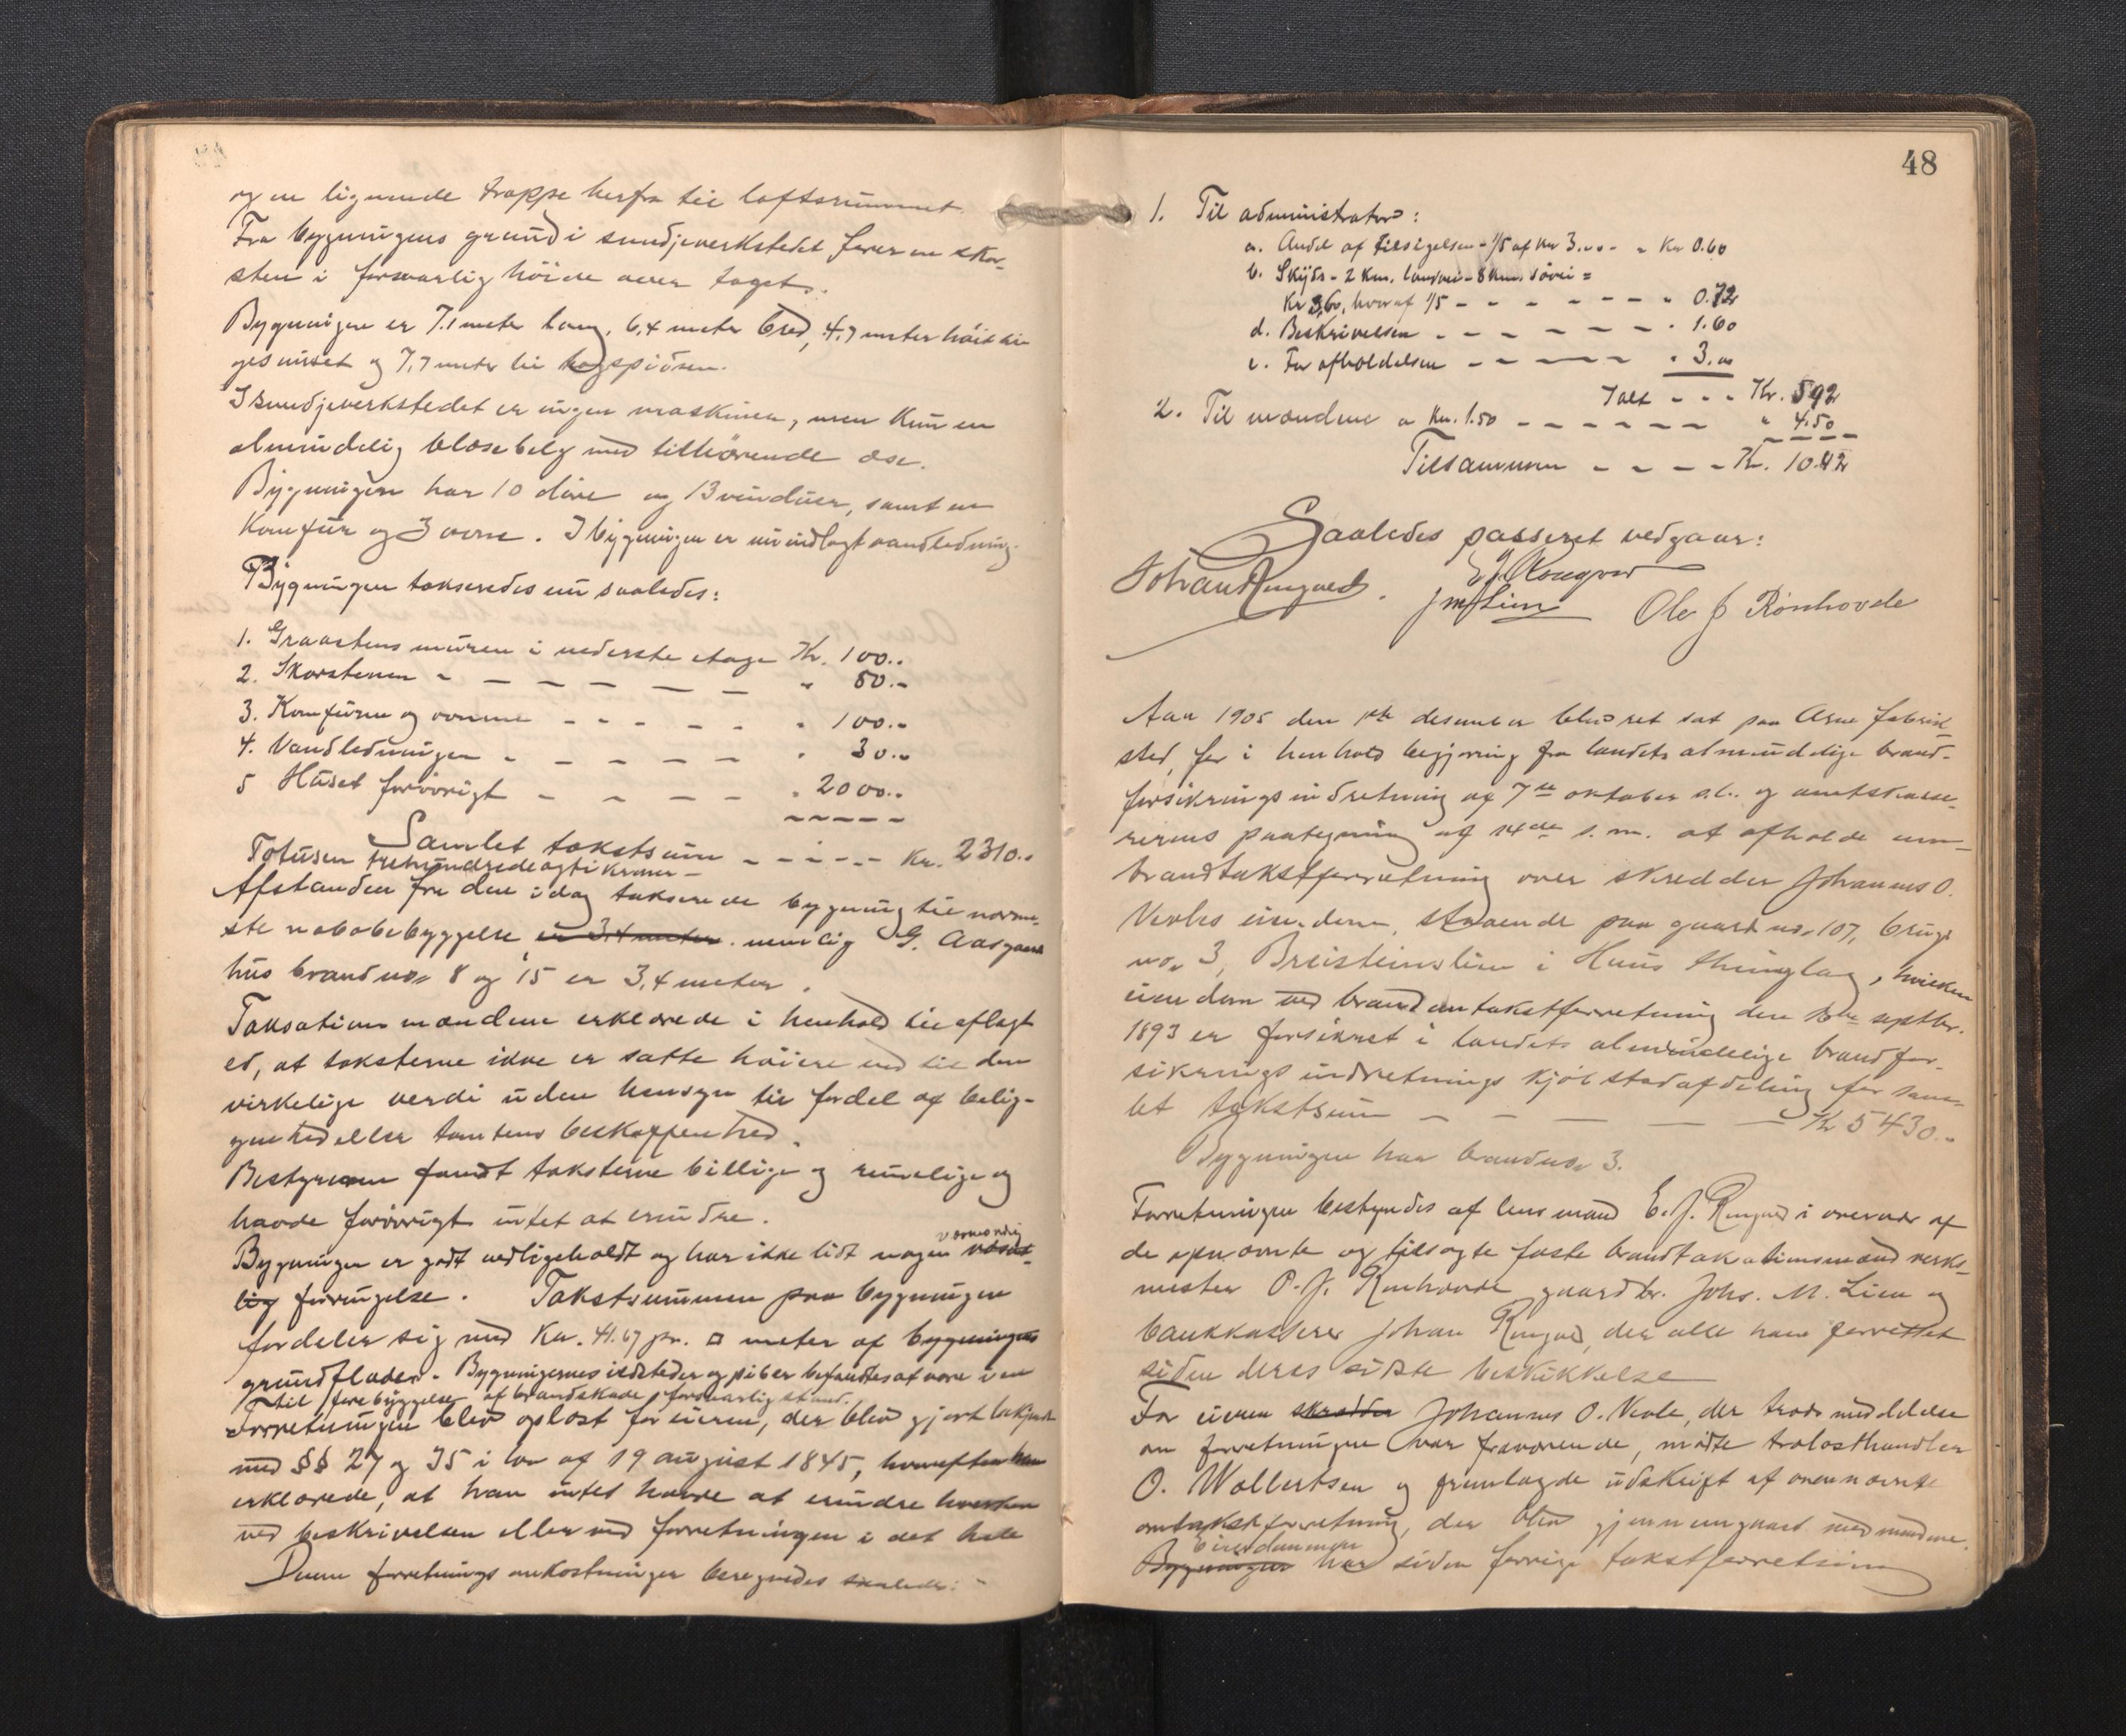 og en lignende trappe herfra til loftsrummet.
Fra bygningens grund i smedjeverkstedet fører en skor-
sten i forsvarlig höide over taget.
Bygningen er 7.1 meter lang, 6,4 meter bred, 4.7 meter höit til
gesimset og 7,7 meter til tagspidsen.
I smedjeverkstedet er ingen maskiner, men kun en
almindelig blæsebelg med tilhörende
Bygningen har 10 döre og 13 vinduer, samt en
Komfur og 3 ovne. I bygningen er nu indlagt vandledning.
Bygningen takseredes nu saaledes:
1. Graastens muren i nederste etage Kr. 100..
2. Skorstenen - - - - - - - " 80.-
3. Komfuren og ovnene - - - - - " 100.-
4. Vandledningen - - - - - - " 30..
5 Huset forövrigt - - - - - " 2000..
Samlet takstsum - - - - - Kr. 2310..
Totusen trehundredeogti kroner -
Afstanden fra den idag takserede bygning til nærme-
ste nabobebyggelse er 3.4 meter. nemlig G. Aasgaard
hus brandno. 8 og 15 er 3,4 meter.
Taksationsmændene erklærede i henhold til aflagt
ed, at taksterne ikke er satte höiere end til den
virkelige verdi uden hensyn til fordel af belig-
genhed eller tomtens beskaffenhed.
Bestyreren fandt taksterne billige og rimelige og
havde forövrigt intet at erindre.
væsendtlig
Bygningen er godt vedligeholdt og har ikke lidt nogen
lig forringelse. Takstsummen paa bygningen
fordeler sig med Kr. 41.67 pr. □ meter af bygningens
grundflade. Bygningernes ildsteder og piber befandtes at være i en
til forebyggelse af brandskade forsvarlig stand.
Forretningen blev oplæst for eieren, der blev gjort bekjendt
med §§ 27 og 35 i lov af 19 august 1845, hvorefter han
erklærede, at han intet havde at erindre hverken
ved beskrivelsen eller ved forretningen i det hele
Denne forretnings omkostninger beregnedes saaledes: -
48
1. Til administrator:
a. Andel af tilsigelsen - 1/5 af Kr 3.00 - " Kr 0.60
b. Skyds - 2 km. landvei - 8 km. sövei =
Kr 3,60, hvoraf 1/5 - - - - - - - " 0.72
d. Beskrivelsen - - - - - - - " 1.60
e. For afholdelsen - - - - - - " 3.00
Ialt - - - Kr. 592
2. Til mændene a Kr. 1.50 - - - - - - " 4.50
Tilsammen - - - - Kr. 10.42
Saaledes passeret vedgaar:
E J Rongved
Johan Rongved. J M Lien Ole J Rönhovde
Aar 1905 den 1ste desember blev ret sat paa Arne fabrik-
sted, for i henhold begjæring fra landets almindelige brand-
forsikringsindretning af 7de oktober d.a. og amtskasse-
rerens paategning af 14de s. m. at afholde om-
brandtakstforretning over skredder Johannes O.
Veoles eiendom, staaende paa gaard no. 107, brugs
no. 3, Breisteinslien i Hauss thinglag, hvilken
eiendom ved brandomtakstforretning den 18de septbr.
1893 er forsikret i landets almindelige brandfor-
sikrings indretnings kjöbstadafdeling for sam-
let takstsum - - - - - Kr 5430..
Bygningen har brandno. 3.
Forretningen bestyredes af lensmand E. J. Rongved i overvær af
de opnævnte og tilsagte faste brandtaksationsmænd verks-
mester O. J. Rönhovde gaardbr. Johs. M. Lien og
bankkasserer Johan Rongved, der alle have forrettet
siden deres sidste beskikkelse
For eieren skredder Johannes O. Veole, der trods meddelelse
om forretningen var fraværende, mödte trælasthandler
O. Wollertsen og fremlagde udskrift af ovennævnte
omtakstforretning, der blev gjennemgaaet med mændene.
Eiendommen
Bygningen har siden forrige takstforretning